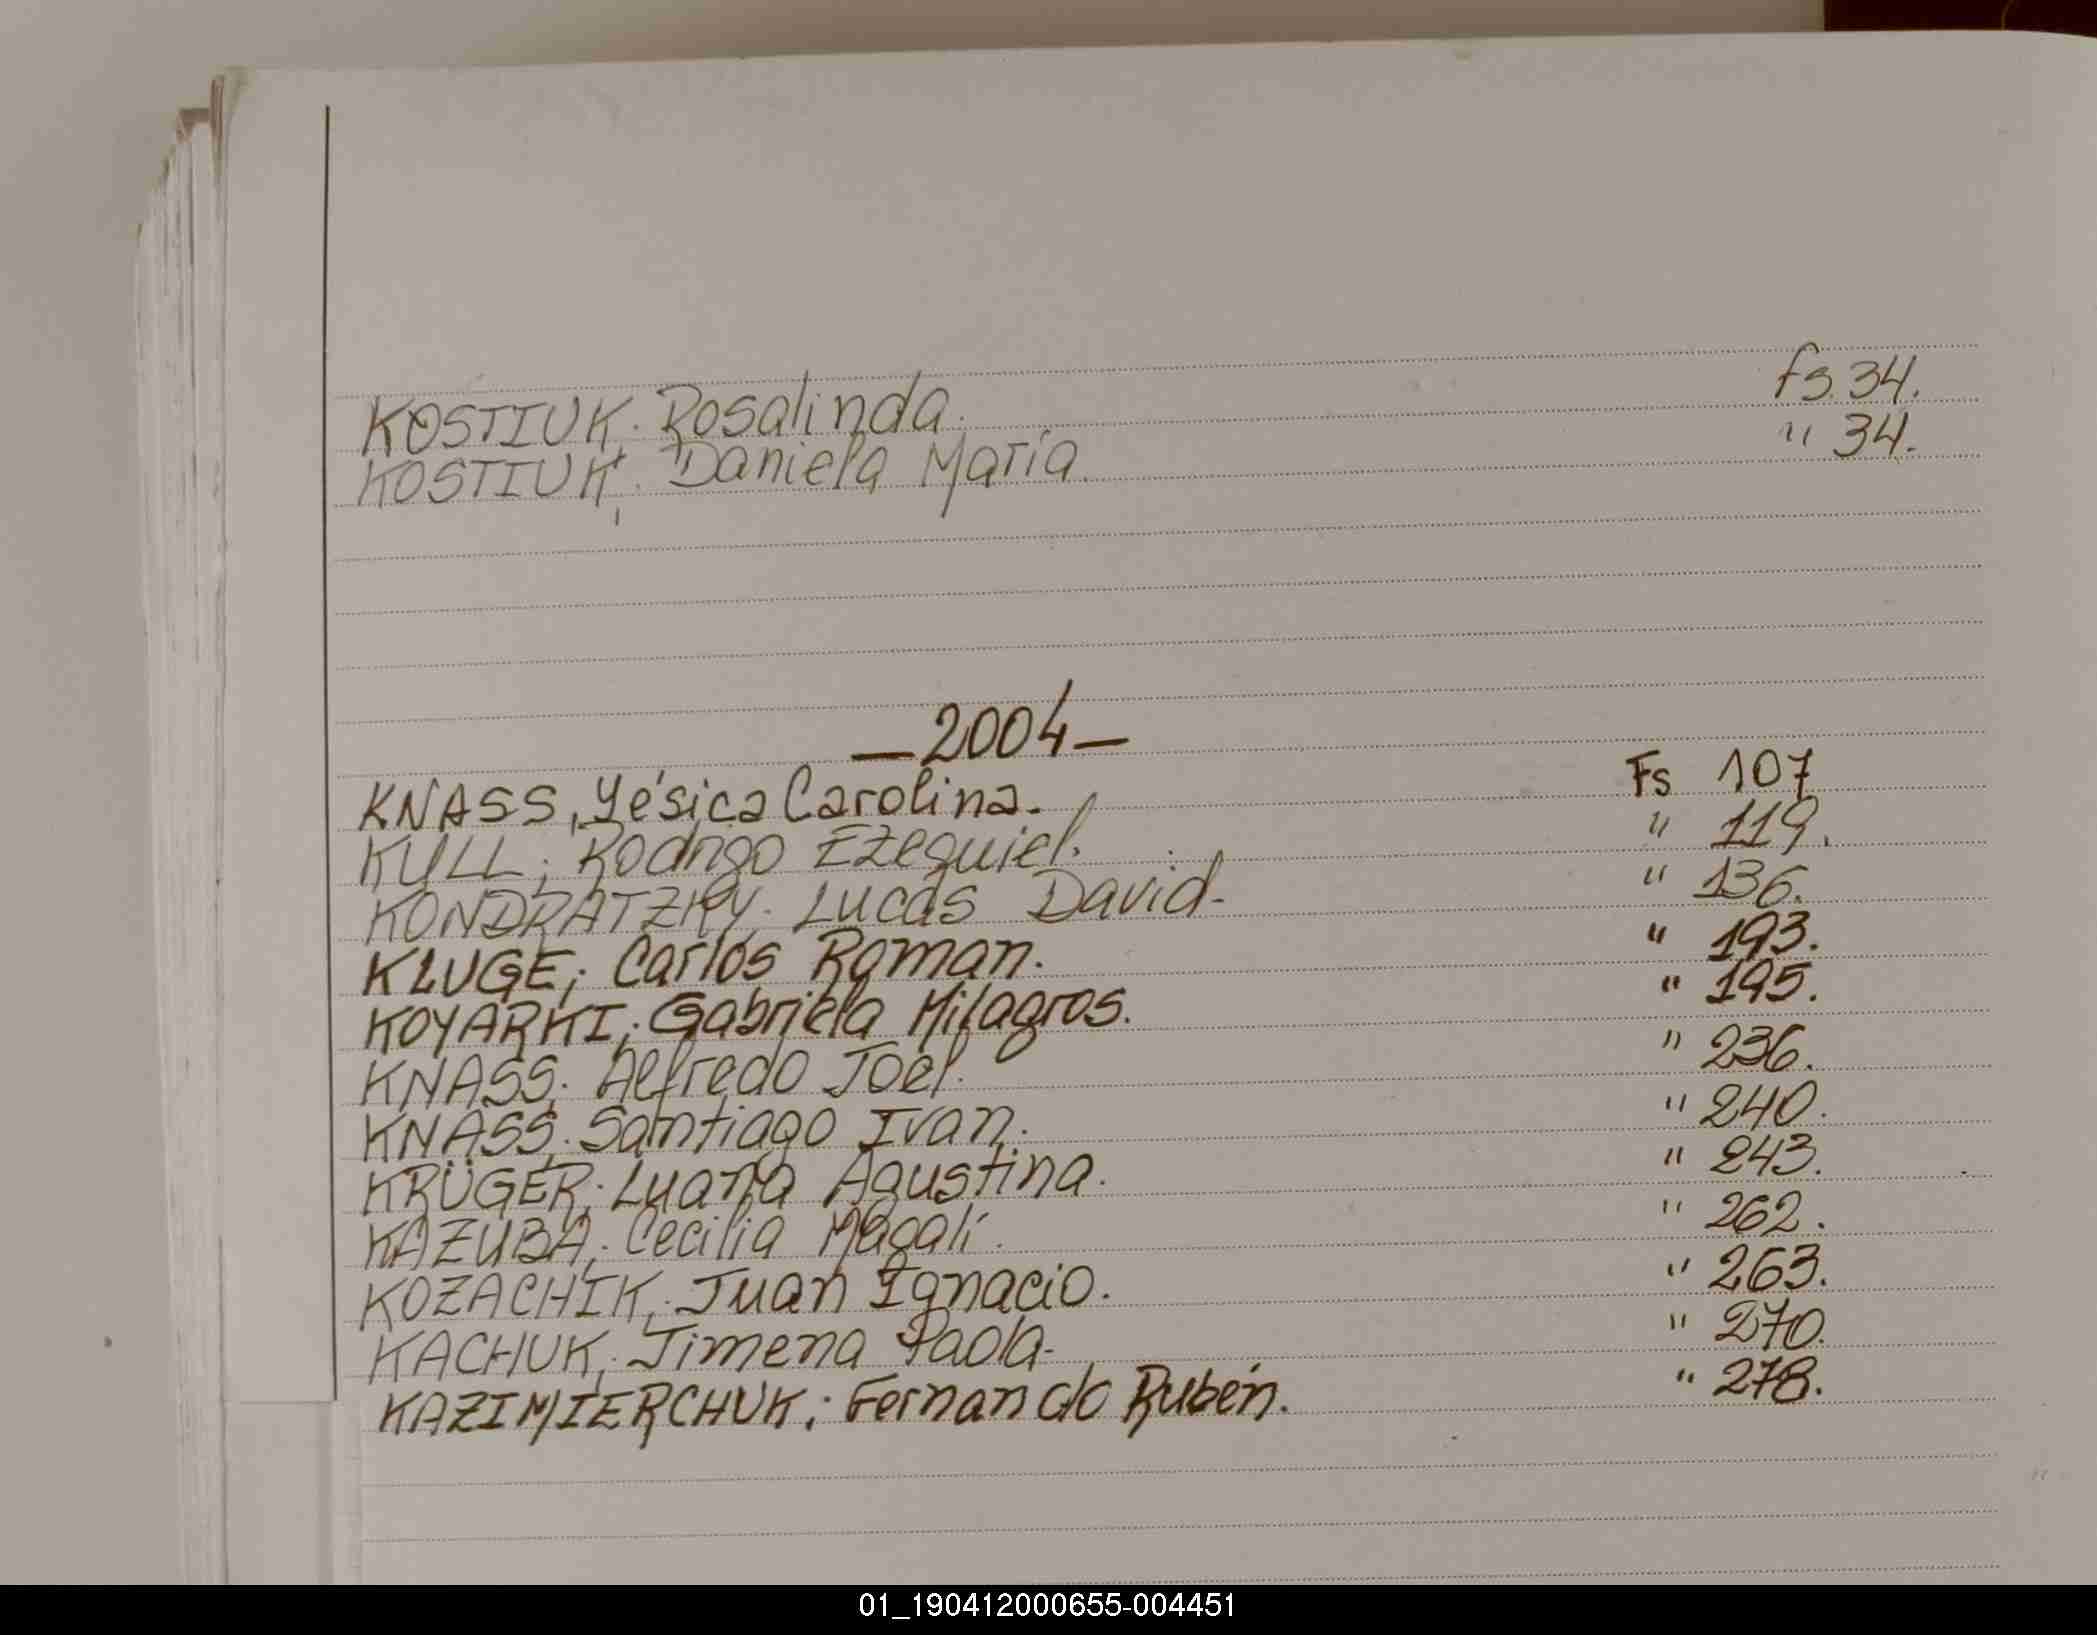 KOSTIUK; Rosalinda. fs. 34.
KOSTIUK; Daniela María. " 34.
—2004—
KNASS, Yésica Carolina. Fs 107
KULL; Rodrigo Ezequiel. " 119.
KONDRATZKY; Lucas David. " 136.
KLUGE; Carlos Roman. " 193.
KOYARKI; Gabriela Milagros. " 195.
KNASS; Alfredo Joel. " 236.
KNASS; Santiago Ivan. " 240.
KRÜGER; Luana Agustina. " 243.
KAZUBA; Cecilia Magalí. " 262.
KOZACHIK; Juan Ignacio. " 263.
KACHUK; Jimena Paola. " 270.
KAZIMIERCHUK; Fernando Rubén. " 278.
01_190412000655-004451